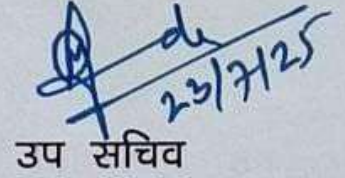 23/7/25
उप सचिव